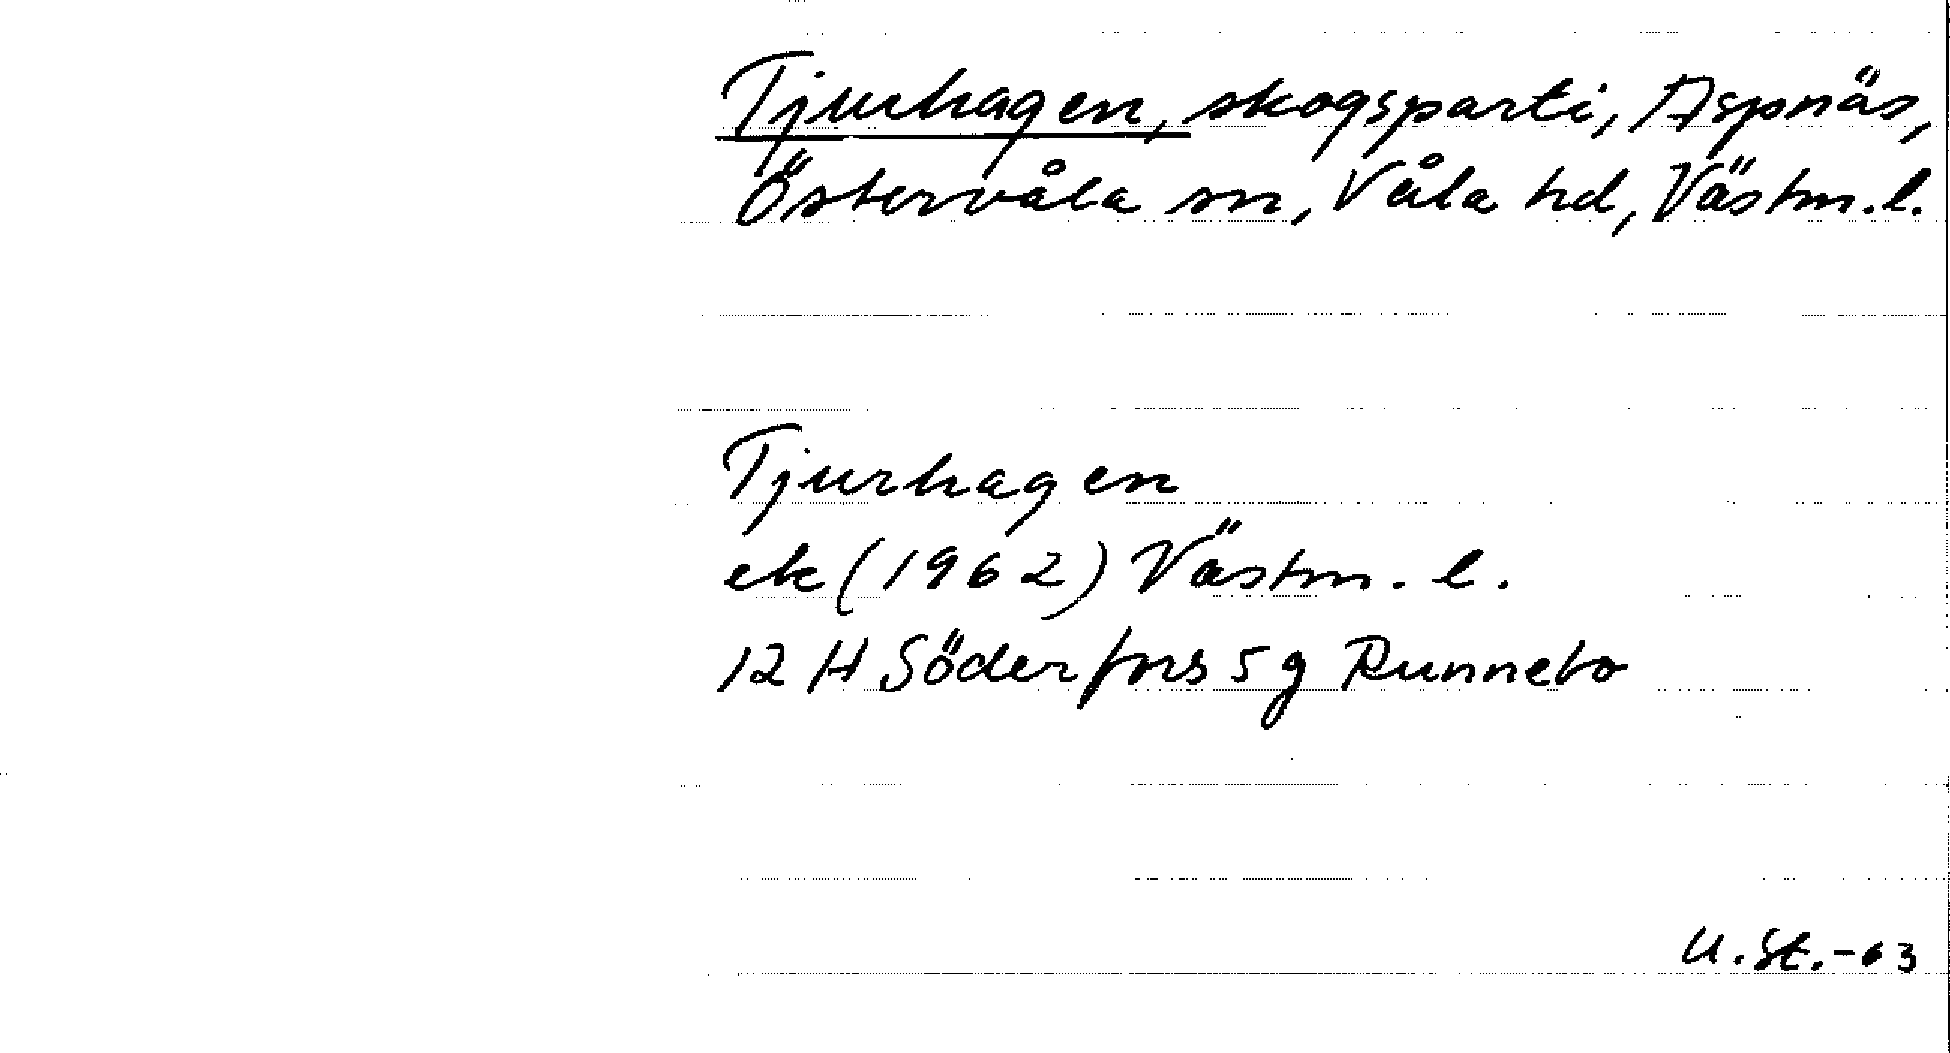 Tjurhagen, skogsparti, Aspnäs,
Östervåla sn, Våla hd, Västm.l.
Tjurhagen
ek (1962) Västm. l.
12 H Söderfors 5 g Runnebo
U.St.-63